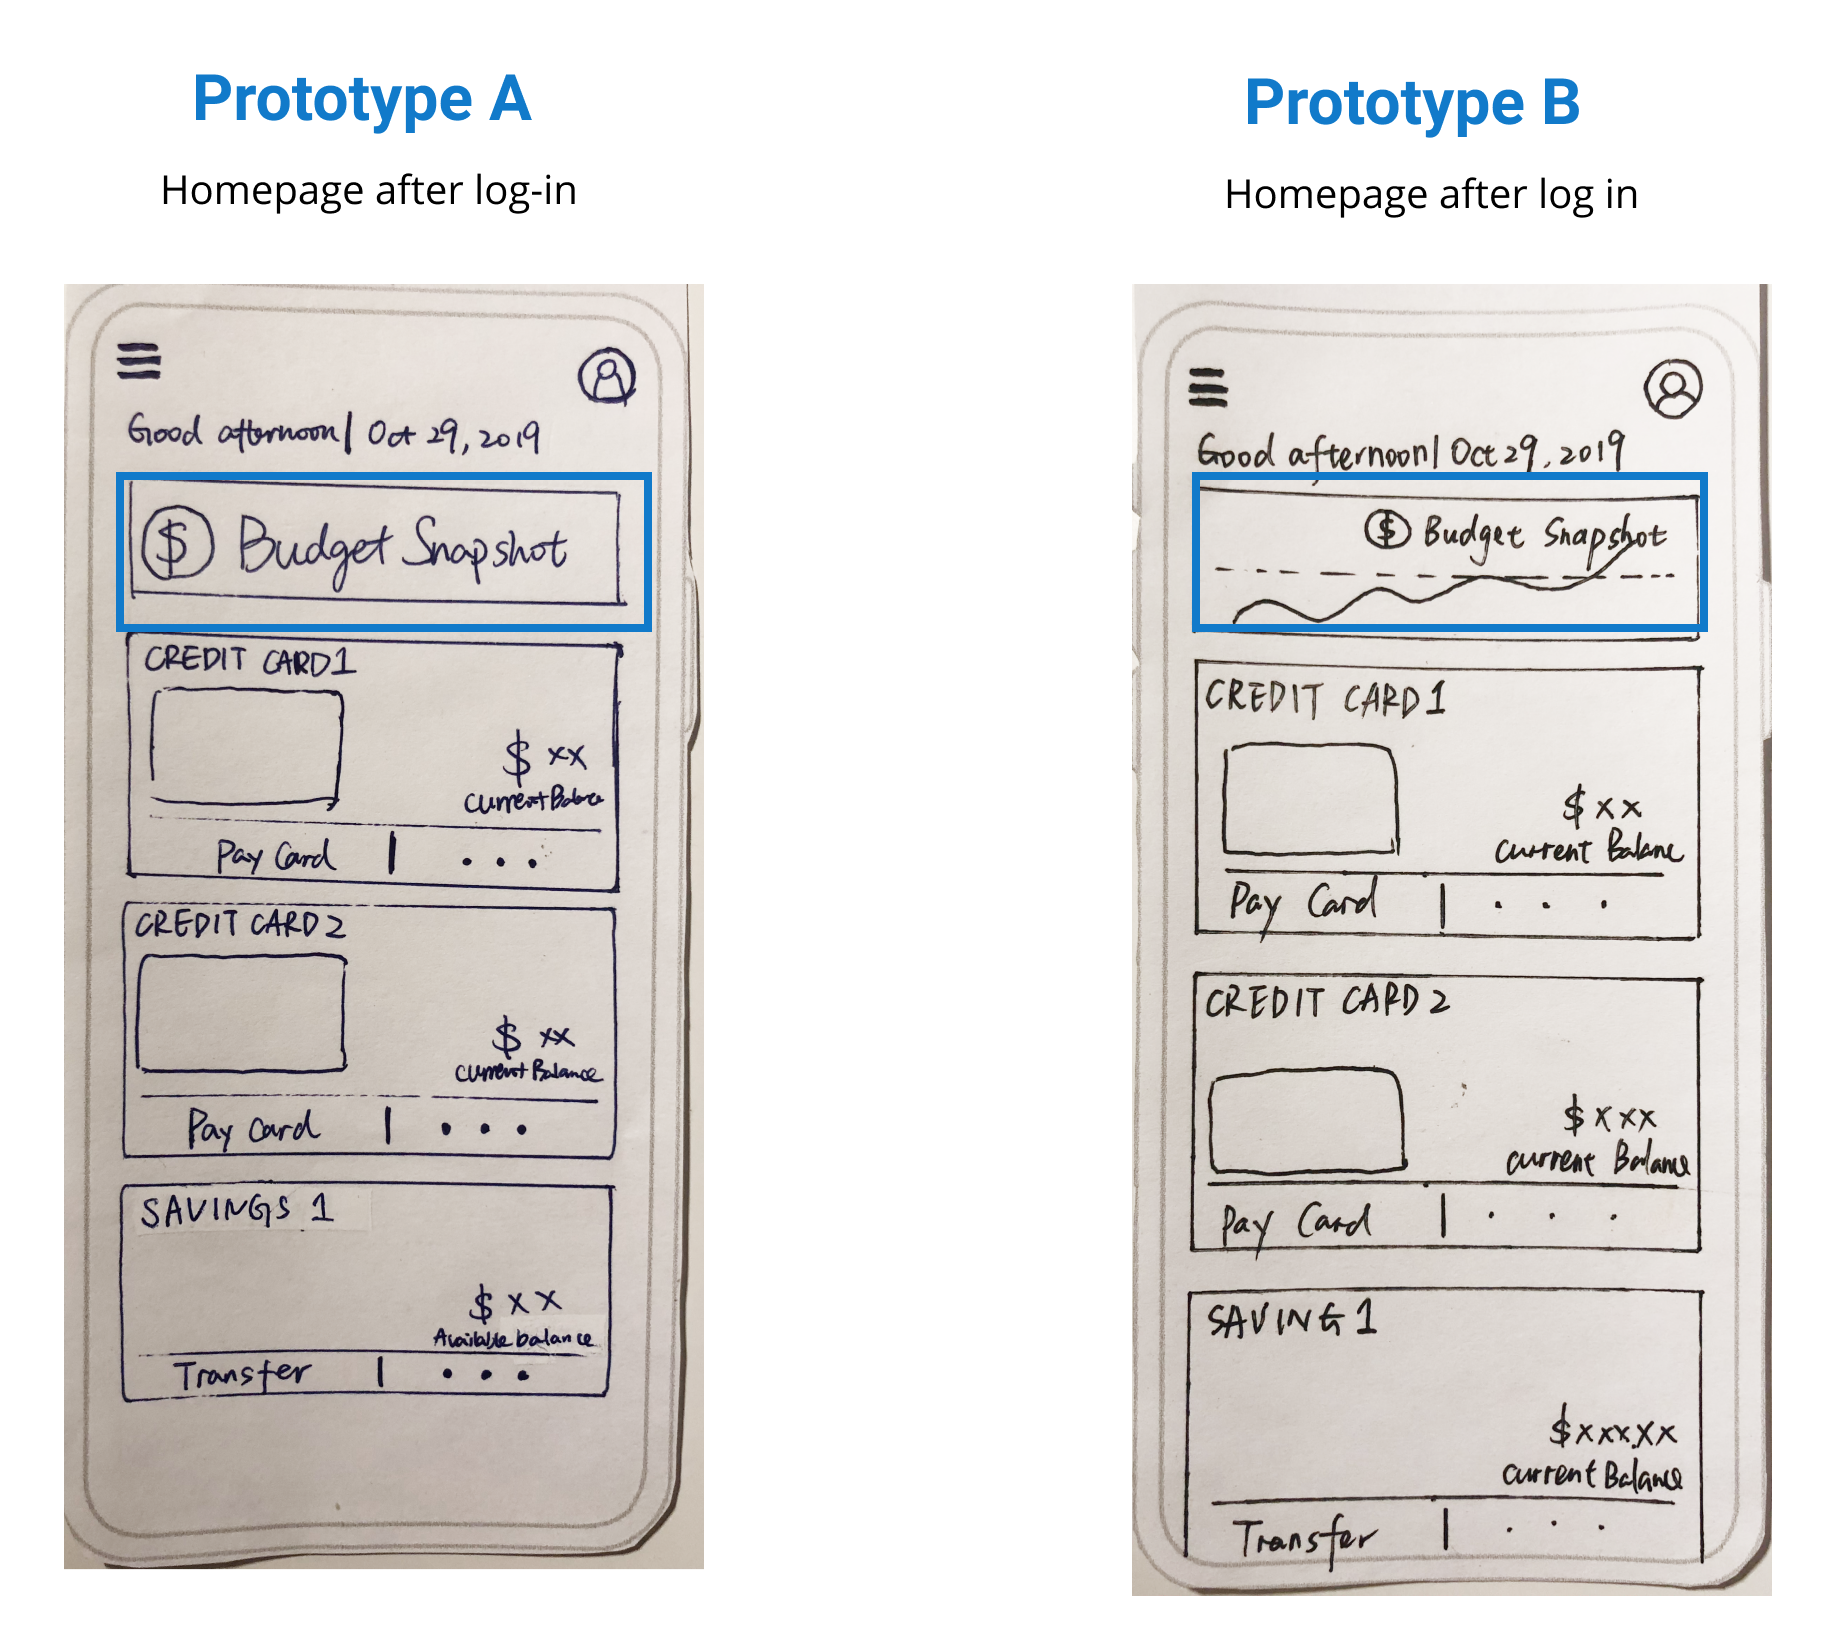 Prototype A
Homepage after log-in
Good afternoon | Oct 29, 2019
$ Budget Snapshot
CREDIT CARD 1
$ xx
Current Balance
Pay Card | ...
CREDIT CARD 2
$ xx
Current Balance
Pay Card | ...
SAVINGS 1
$ x x
Available balance
Transfer | ...
Prototype B
Homepage after log in
Good afternoon | Oct 29, 2019
$ Budget Snapshot
CREDIT CARD 1
$ x x
Current Balanc
Pay Card | ...
CREDIT CARD 2
$ x xx
Current Balance
Pay Card | ...
SAVING 1
$xxx.xx
Current Balance
Transfer | ...